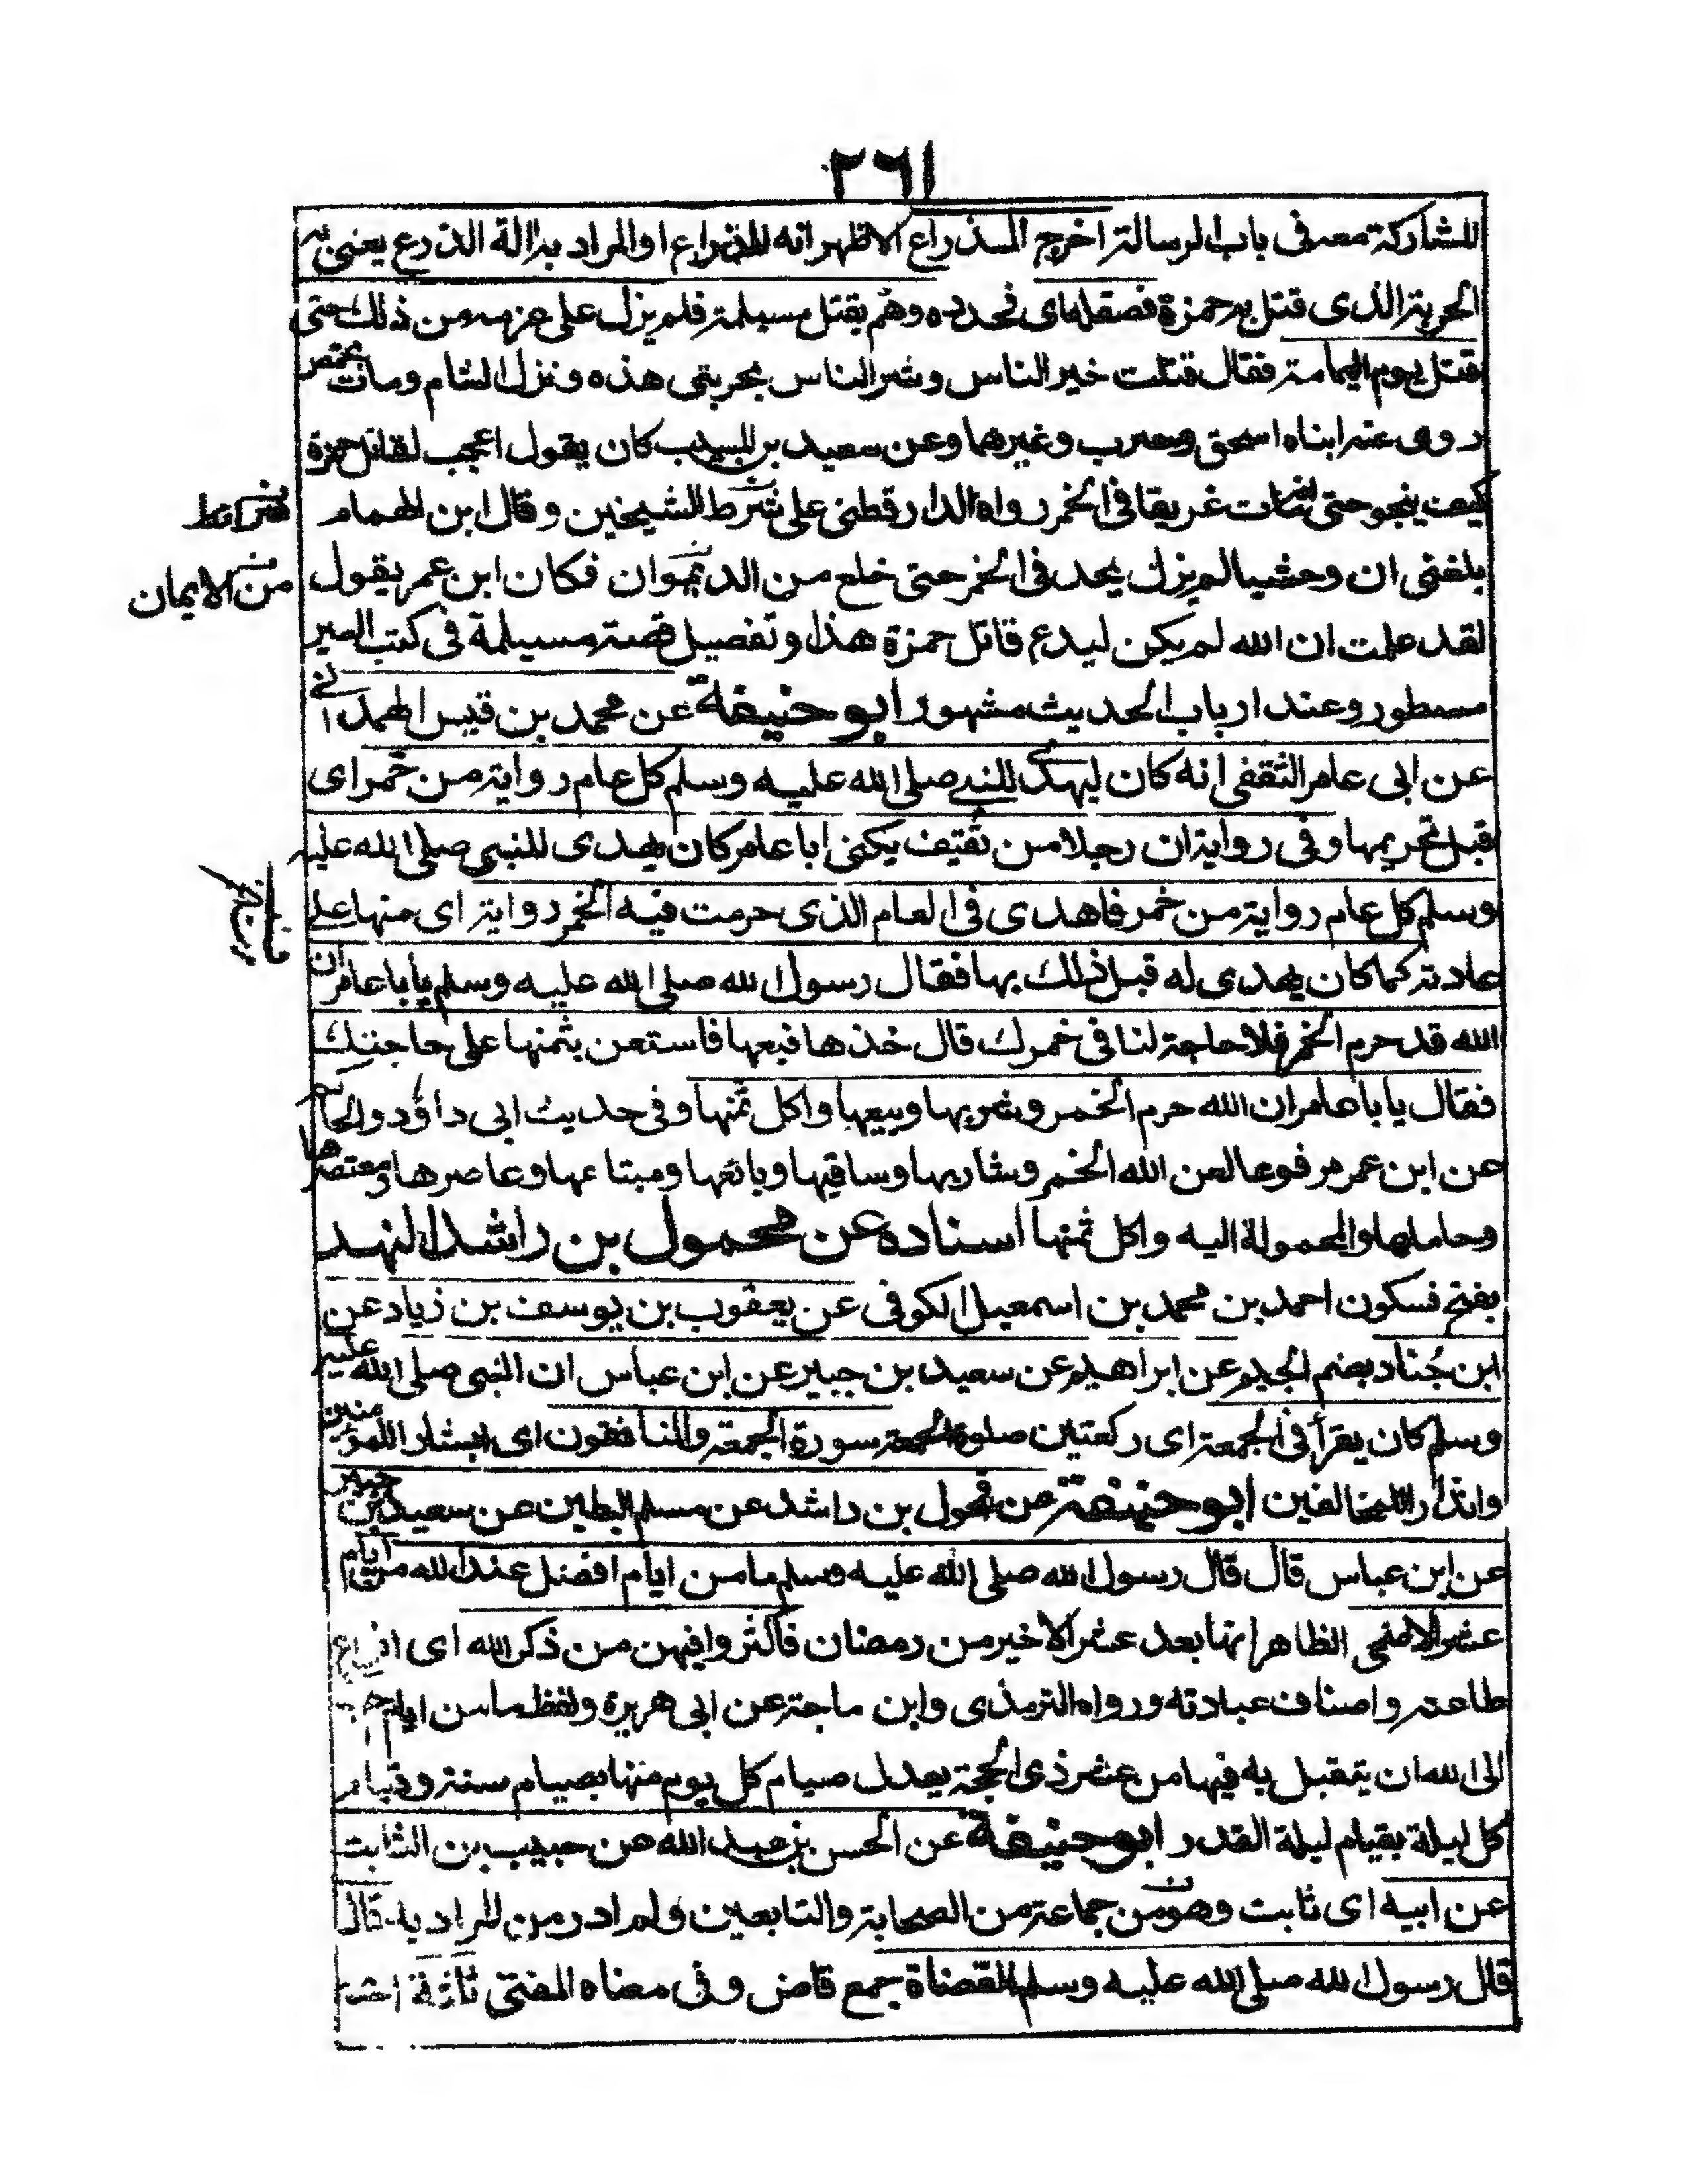 ٢٦١
للشاركة معه فى باب الرسالة اخرج المذراع الاظهر انه للذراع او المراد به الة الذرع يعنى به
الحربة الذى قتل به حمزة فصقلها اى فحدده وهم بقتل مسيلمة فلم يزل على عزمه من ذلك حتى
قتل يوم اليمامة فقال قتلت خير الناس وشر الناس بحربتى هذه ونزل الشام ومات بحمص
روى عنه ابناه اسحق وحرب وغيرهما وعن سعيد بن المسيب كان يقول اعجب لقاتل حمزة
كيف ينجو حتى مات غريقا فى الخمر رواه الدارقطنى على شرط الشيخين وقال ابن الهمام
شرائط
بلغنى ان وحشيا لم يزل يحد فى الخمر حتى خلع من الديوان فكان ابن عمر يقول
من الايمان
لقد علمت ان الله لم يكن ليدع قاتل حمزة هذا وتفصيل قصة مسيلمة فى كتب السير
مسطور وعند ارباب الحديث مشهور ابو حنيفة عن محمد بن قيس الهمدانى
عن ابى عامر الثقفى انه كان ليهدى للنبى صلى الله عليه وسلم كل عام رواية من خمر اى
قبل تحريمها وفى رواية ان رجلا من ثقيف يكنى ابا عامر كان يهدى للنبى صلى الله عليه
وسلم كل عام رواية من خمر فاهدى فى العام الذى حرمت فيه الخمر رواية اى منها على
عادته كما كان يهدى له قبل ذلك بها فقال رسول الله صلى الله عليه وسلم يابا عامر ان
الله قد حرم الخمر فلا حاجة لنا فى خمرك قال خذها فبعها فاستعن بثمنها على حاجتك
فقال يا با عامر ان الله حرم الخمر وشربها وبيعها واكل ثمنها وفى حديث ابى داؤد والحاكم
عن ابن عمر مرفوعا لعن الله الخمر وشاربها وساقيها وبائعها ومبتاعها وعاصرها ومعتصرها
وحاملها والمحمولة اليه واكل ثمنها اسناده عن محمول بن راشد النهد
بفتح فسكون احمد بن محمد بن اسمعيل الكوفى عن يعقوب بن يوسف بن زياد عن
ابن جُناد بضم الجيم عن ابراهيم عن سعيد بن جبير عن ابن عباس ان النبى صلى الله عليه
وسلم كان يقرأ فى الجمعة اى ركعتين صلوة الجمعة سورة الجمعة والمنافقون اى ابشار اللمؤمنين
وانذار اللمخالفين ابو حنيفة عن مخول بن راشد عن مسلم البطين عن سعيد بن جبير
عن ابن عباس قال قال رسول الله صلى الله عليه وسلم ما من ايام افضل عند الله من ايام
عشر الاضحى الظاهر انها بعد عشر الاخير من رمضان فاكثروا فيهن من ذكر الله اى انواع
طاعته واصناف عبادته ورواه الترمذى وابن ماجة عن ابى هريرة ولفظ ما من ايام
الى الله ان يتقبل به فيها من عشر ذى الحجة يعدل صيام كل يوم منها بصيام سنة وقيام
كل ليلة بقيام ليلة القدر ابو حنيفة عن الحسن بن عبد الله عن حبيب بن الثابت
عن ابيه اى ثابت وهو من جماعة من الصحابة والتابعين ولم ادر من المراد به قال
قال رسول الله صلى الله عليه وسلم القضاة جمع قاض وفى معناه المفتى ثلثة